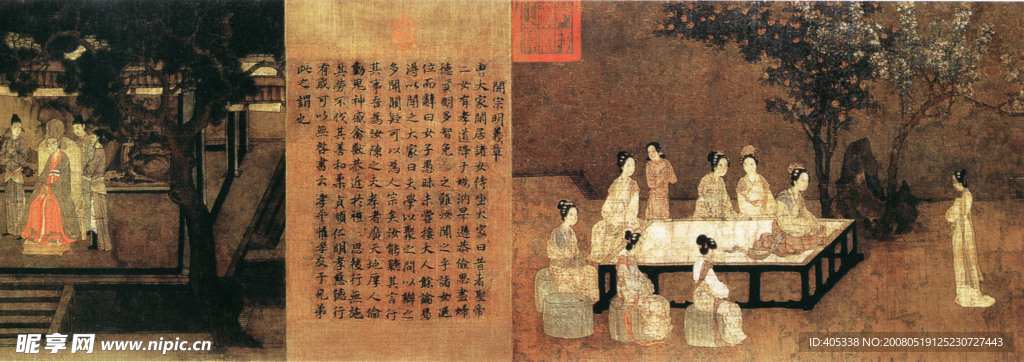 開宗明義章
曹大家閒居諸女侍坐大家曰昔者聖帝
二女有孝道降于媯汭卑遜恭儉思盡婦
德多智免之難汝聞之乎諸女退
位而辭曰女子愚昧未嘗接大人餘論曷
得以聞之大家曰夫學以聚之問以辯之
多聞闕疑可以為人宗矣汝能聽其言行
其事吾為汝陳之夫孝者廣天地厚人倫
動鬼神感禽獸恭近於禮三思後行無施
其勞不伐其善和柔貞順仁明孝慈德行
有成可以無咎書云孝乎惟孝友于兄弟
此之謂也
昵享网 www.nipic.cn
ID:405338 NO:20080519125230727443